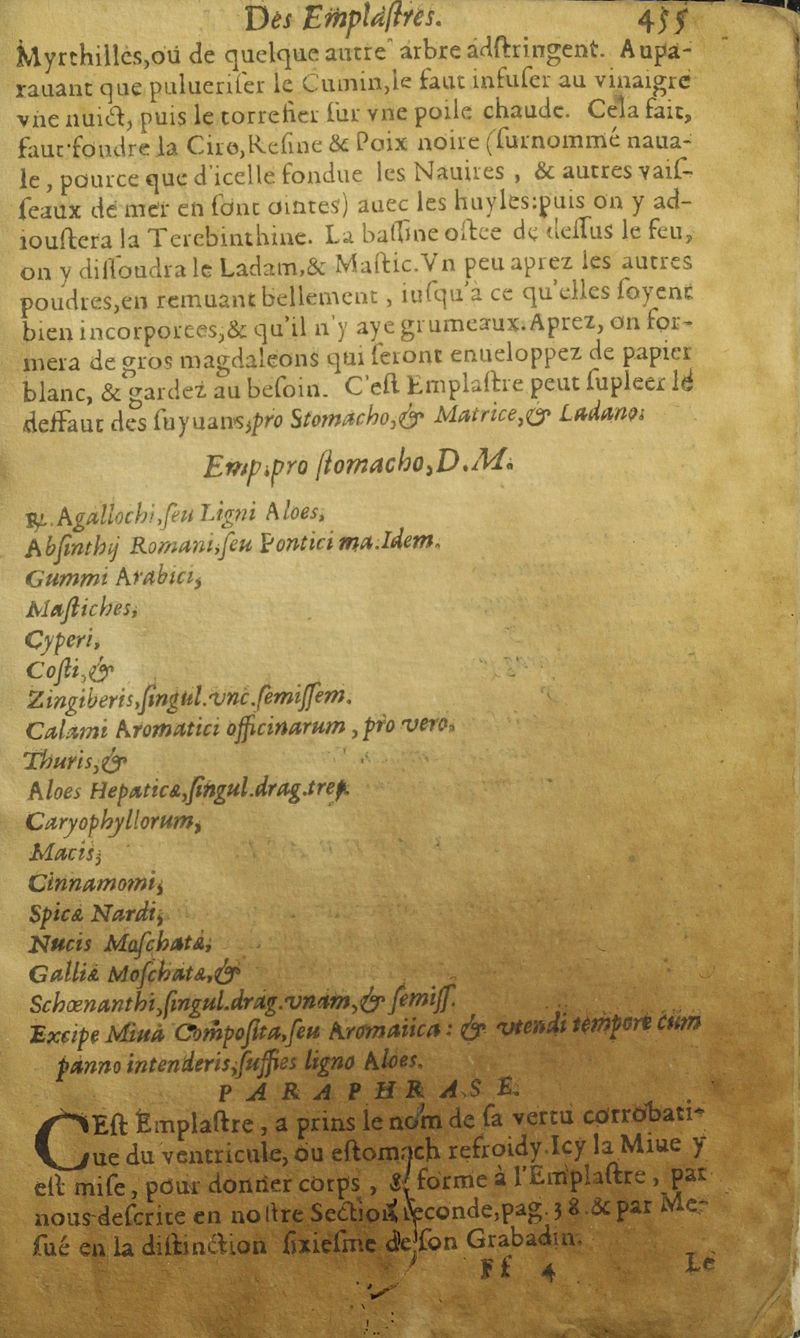 Des Emplastres. 455
Myrthilles,ou de quelque autre arbre adstringent. Aupa-
rauant que puluerifer le Cumin,le faut infuser au vinaigre
vne nuict, puis le torrefier sur vne poile chaude. Cela fait,
faut fondre la Cire,Resine & Poix noire (surnommé naua-
le, pource que d'icelle fondue les Nauires, & autres vais-
seaux de mer en sont ointes) auec les huyles:puis on y ad-
ioustera la Terebinthine. La bassine ostee de dessus le feu,
on y dissoudra le Ladam,& Mastic.Vn peu aprez les autres
poudres,en remuant bellement, iusqu'à ce qu'elles soyent
bien incorporees,& qu'il n'y aye grumeaux.Aprez, on for-
mera de gros magdaleons qui seront enueloppez de papier
blanc, & gardez au besoin. C'est Emplastre peut supleer le
deffaut des suyuans,pro Stomacho,& Matrice,& Ladano:
Emp.pro stomacho,D.M.
℞.Agallochi,seu Ligni Aloes,
Absinthij Romani,seu Pontici ma.Idem.
Gummi Arabici,
Mastiches,
Cyperi,
Costi,&
Zingiberis,singul.vnc.semissem.
Calami Aromatici officinarum, pro vero,
Thuris,&
Aloes Hepaticæ,singul.drag.tres.
Caryophyllorum,
Macis,
Cinnamomi,
Spicæ Nardi,
Nucis Moschatæ,
Galliæ Moschatæ,&
Schœnanthi,singul.drag.vnam,& semiss.
Excipe Miuâ Composita,seu Aromatica: & vtendi tempore cùm
panno intenderis,suffies ligno Aloes.
PARAPHRASE.
CEst Emplastre, a prins le nom de sa vertu corrobati-
ue du ventricule, ou estomach refroidy.Icy la Miue y
est mise, pour donner corps, & forme à l'Emplastre, par
nous descrite en nostre Section seconde,pag.38.& par Me-
sué en la distinction sixiesme de son Grabadin.
Ff 4 Le